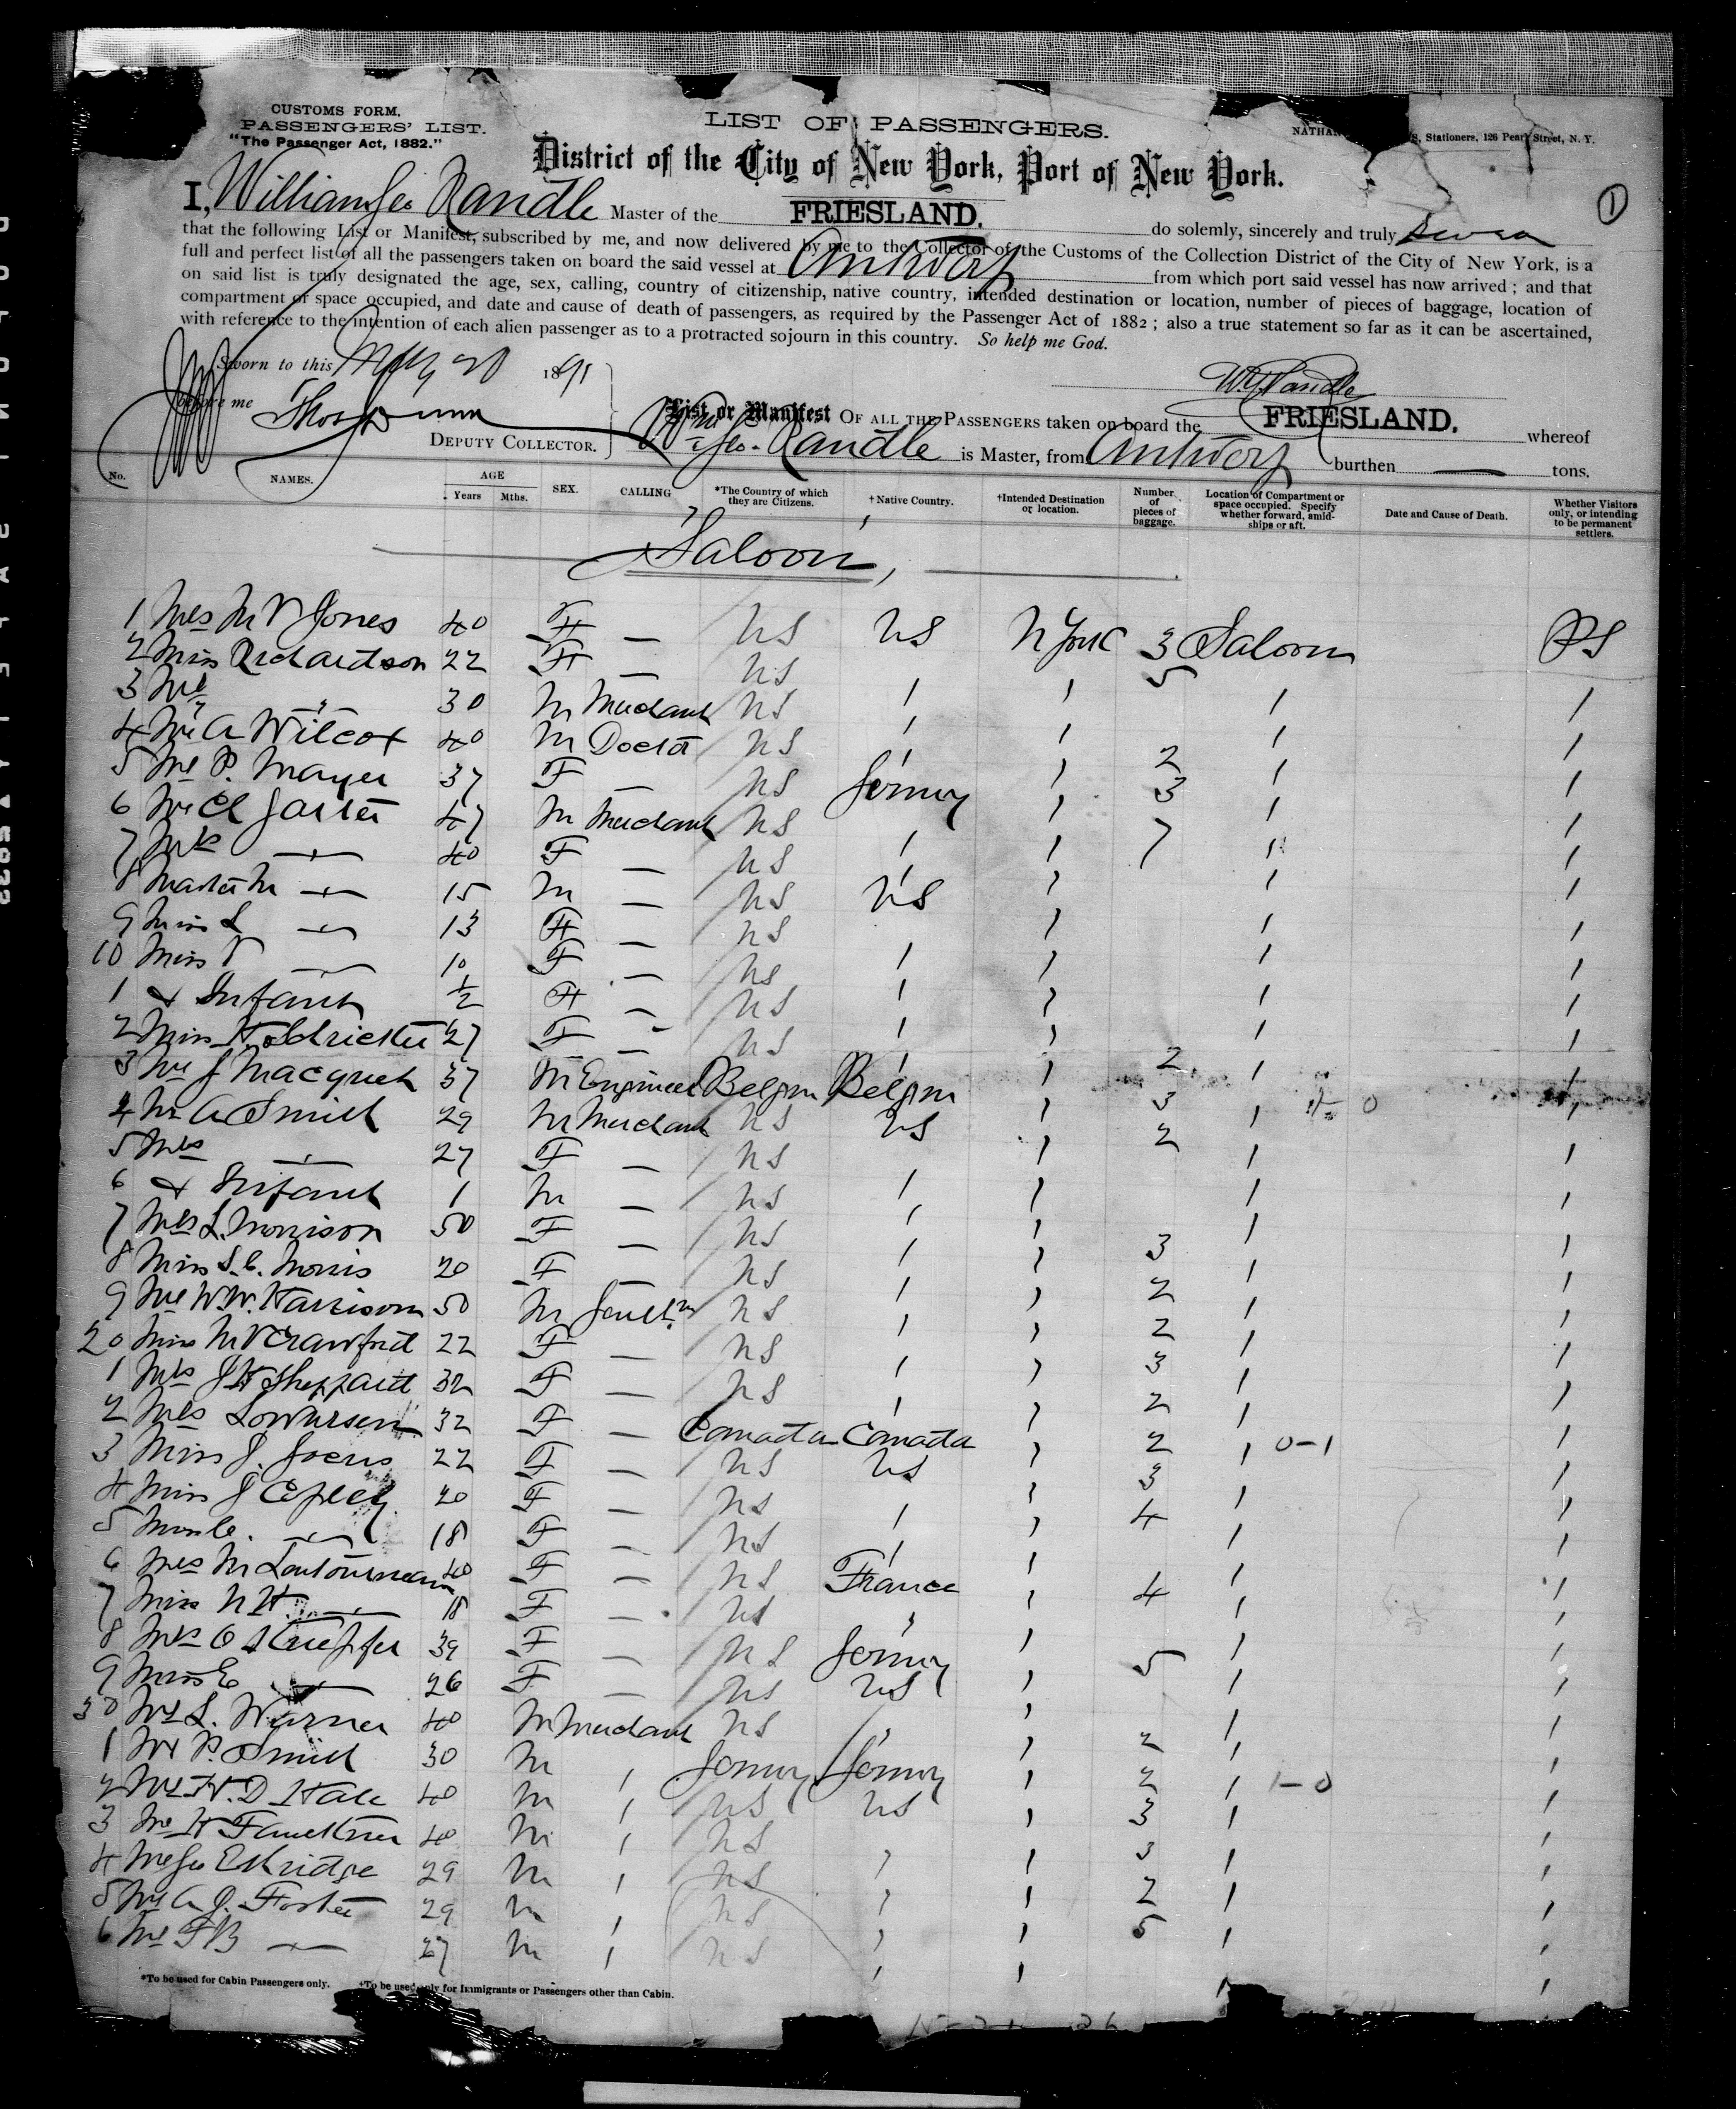 CUSTOMS FORM.
PASSENGERS' LIST.
"The Passenger Act, 1882."
LIST OF PASSENGERS.
NATHAN S, Stationers, 126 Pearl Street, N. Y.
District of the City of New York, Port of New York.
1
I, William Geo Randle Master of the FRIESLAND. do solemnly, sincerely and truly swear
that the following List or Manifest, subscribed by me, and now delivered by me to the Collector of the Customs of the Collection District of the City of New York, is a
full and perfect list of all the passengers taken on board the said vessel at Antwerp from which port said vessel has now arrived ; and that
on said list is truly designated the age, sex, calling, country of citizenship, native country, intended destination or location, number of pieces of baggage, location of
compartment or space occupied, and date and cause of death of passengers, as required by the Passenger Act of 1882 ; also a true statement so far as it can be ascertained,
with reference to the intention of each alien passenger as to a protracted sojourn in this country. So help me God.
Sworn to this May 20 1891
W G Randle
before me Thos Dunn
DEPUTY COLLECTOR.
List or Manifest OF ALL THE PASSENGERS taken on board the FRIESLAND. whereof
Wm Geo. Randle is Master, from Antwerp burthen — tons.
No. NAMES. AGE Years Mths. SEX. CALLING *The Country of which they are Citizens. †Native Country. †Intended Destination or location. Number of pieces of baggage. Location of Compartment or space occupied. Specify whether forward, amidships or aft. Date and Cause of Death. Whether Visitors only, or intending to be permanent settlers.
Saloon,
1 Mrs M V Jones 40 F — US US N York 3 Saloon PS
2 Miss Richardson 22 F — US 5
3 Mr " " 30 M Merchant US
4 Mr A Wilcox 40 M Doctor US 2
5 P. Mayer 37 F US Germy 3
6 Mr 47 M Merchant US 7
7 Mrs — 40 F — US
8 Master M — 15 M — US US
9 Miss L — 13 F — US
10 Miss V — 10 F — US
1 & Infant 1/2 F — US
2 Miss H 27 F — US 2
3 Mr J Macquet 37 M Engineer Belgm Belgm 3
4 Mr A Smith 29 M Merchant US US 2
5 Mrs — 27 F — US
6 & Infant 1 M — US
7 Mrs L. Morrison 50 F — US 3
8 Miss S. C. Morris 20 F — US 2
9 Mr W. W. Harrison 50 M Gentln US 2
20 Miss M V Crawford 22 F — US 3
1 Mrs J H Sheppard 32 F — US 2
2 Mrs 32 F — Canada Canada 2 0-1
3 Miss J. 22 F — US US 3
4 Miss J 20 F — US 4
5 Miss C. — 18 F — US
6 Mrs M 40 F — US France 4
7 Miss N H. — 18 F — US
8 Mrs O 39 F — US Germy 5
9 Miss E — 26 F — US US
30 Mr L. Warner 40 M Merchant US 2
1 Mr P. Smith 30 M Germy Germy 2 1-0
2 Mr H. D Hale 40 M US US 3
3 Mr H Faulkner 40 M US 3
4 Mr Geo Eskridge 29 M US 2
5 Mr A J. Foster 29 M US 5
6 Mr F B — 27 M US
*To be used for Cabin Passengers only. †To be used only for Immigrants or Passengers other than Cabin.